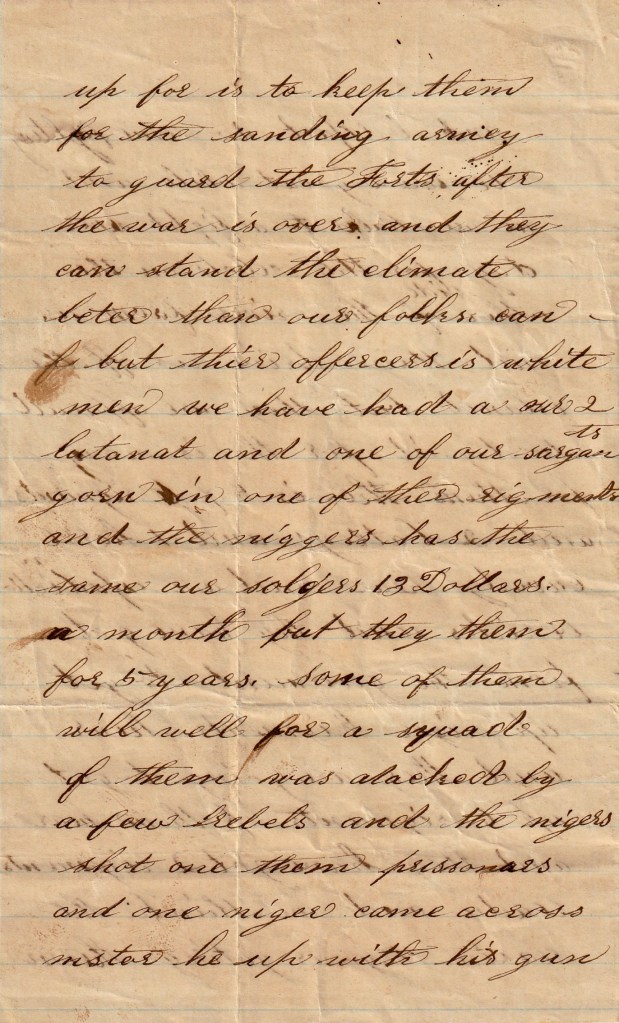 up for is to keep them
for the sanding armey
to guard the Forts after
the war is over and they
can stand the climate
beter than our folks can
f but thier offercers is white
men we have had a our 2
lutanat and one of our sargants
gorn in one of ther rigments
and the niggers has the
same our soldgers 13 Dollars.
a month but they them
for 5 years. some of them
will well for a squad
of them was atacked by
a few Rebels and the nigers
shot one them prissonars
and one niger came across
mstor he up with his gun